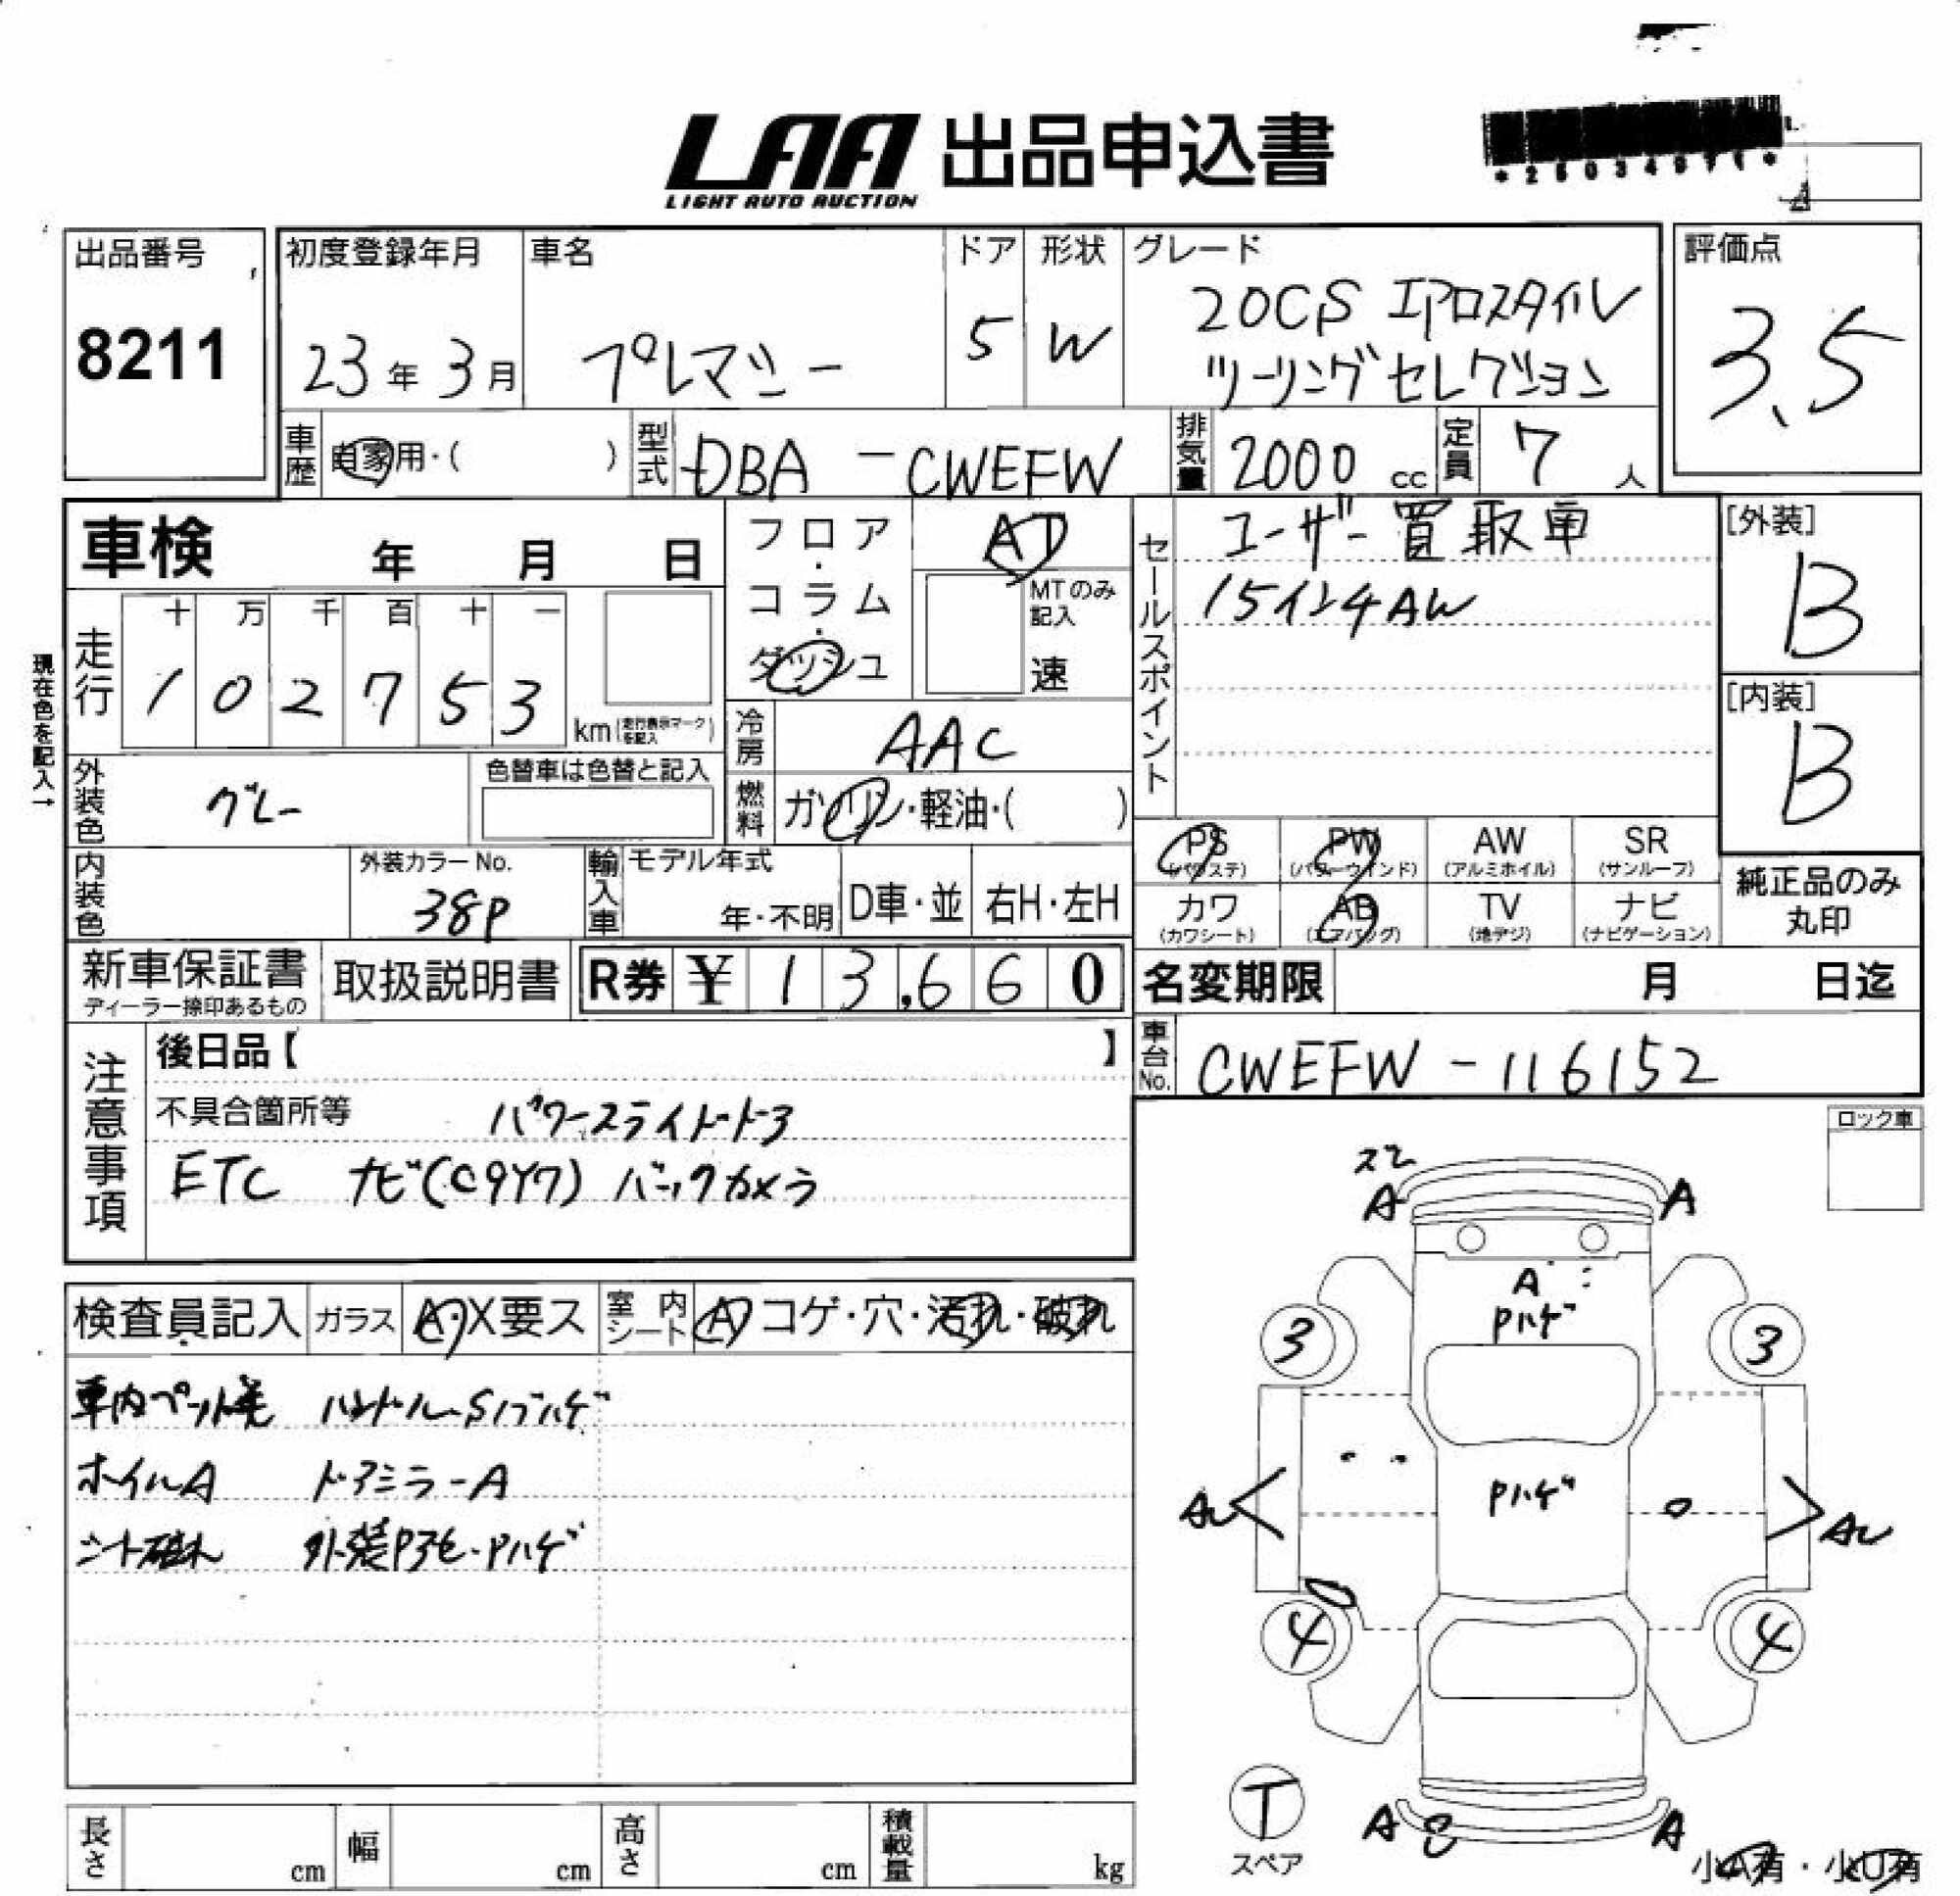 LAA 出品申込書
LIGHT AUTO AUCTION
出品番号
8211
初度登録年月
23年3月
車名
プレマシー
ドア
5
形状
W
グレード
20CS エアロスタイル
ツーリングセレクション
評価点
3.5
車歴
自家用・( )
型式
DBA - CWEFW
排気量
2000 cc
定員
7 人
車検 年 月 日
フロア・コラム・ダッシュ
AT
MTのみ記入
速
セールスポイント
ユーザー買取車
15インチAW
[外装]
B
[内装]
B
現在色を記入→
走行
十 万 千 百 十 一
1 0 2 7 5 3
km(走行表示マークを記入)
冷房
AAC
外装色
グレー
色替車は色替と記入
燃料
ガソリン・軽油・( )
PS AW SR
(パワステ) (パワーウインド) (アルミホイル) (サンルーフ)
PW
カワ AB TV ナビ
(カワシート) (エアバッグ) (地デジ) (ナビゲーション)
純正品のみ
丸印
内装色
外装カラーNo.
38P
輸入車
モデル年式
年・不明
D車・並
右H・左H
新車保証書
ディーラー捺印あるもの
取扱説明書
R券 ¥ 13,660
名変期限 月 日迄
車台No.
CWEFW-116152
注意事項
後日品【 】
不具合箇所等 パワースライドドア
ETC ナビ(C9Y7) バックカメラ
ロック車
検査員記入
ガラス
A・X要ス
室内シート
A コゲ・穴・汚れ・破れ
ハンドル・Sノブハゲ
ホイルA ドアミラーA
シート破れ
A A
A
Pハゲ
3 3
Pハゲ
4 4
T
スペア
A A
小A有・小U有
長さ cm
幅 cm
高さ cm
積載量 kg